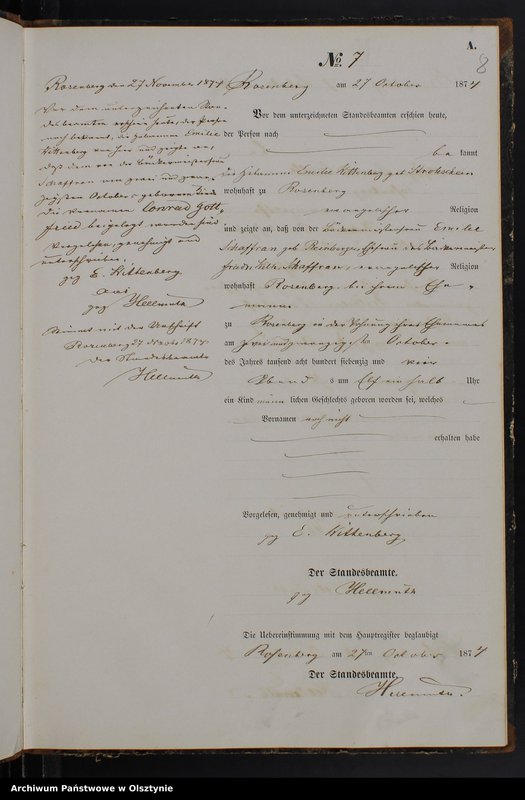 A.
8
No. 7
Rosenberg am 27 October 1874
Vor dem unterzeichneten Standesbeamten erschien heute,
der Person nach
be kannt
die Hebamme Emilie Kittenberg geb
wohnhaft zu Rosenberg
evangelischer Religion
und zeigte an, daß von der Bäckermeisterfrau Emilie
Schaffran geb Ehefrau des Bäckermeister
Schaffran, evangelischer Religion
wohnhaft Rosenberg bei ihrem Ehe
manne
zu Rosenberg in der Wohnung ihres Ehemannes
am zwei und zwanzigsten October
des Jahres tausend acht hundert siebenzig und vier
Abend s um Elf ein halb Uhr
ein Kind männ lichen Geschlechts geboren worden sei, welches
Vornamen noch nicht
erhalten habe
Vorgelesen, genehmigt und unterschrieben
gez E. Kittenberg
Der Standesbeamte.
gez Hellmuth
Die Uebereinstimmung mit dem Hauptregister beglaubigt
Rosenberg am 27ten October 1874
Der Standesbeamte.
Hellmuth.
Rosenberg den 27 November 1874
Vor dem unterzeichneten Stan-
desbeamten erschien heute, der Person
nach bekannt, die Hebamme Emilie
Kittenberg von hier und zeigte an,
daß dem von der Bäckermeisterfrau
Schaffran am zwei und zwan-
zigsten October geborenen Kinde
die Vornamen Conrad Gott-
fried beigelegt worden sind
Vorgelesen, genehmigt und
unterschrieben.
gez E. Kittenberg
gez Hellmuth
Stimmt mit der Urschrift
Rosenberg 27 Novbr 1874
Der Standesbeamte
Hellmuth
Archiwum Państwowe w Olsztynie